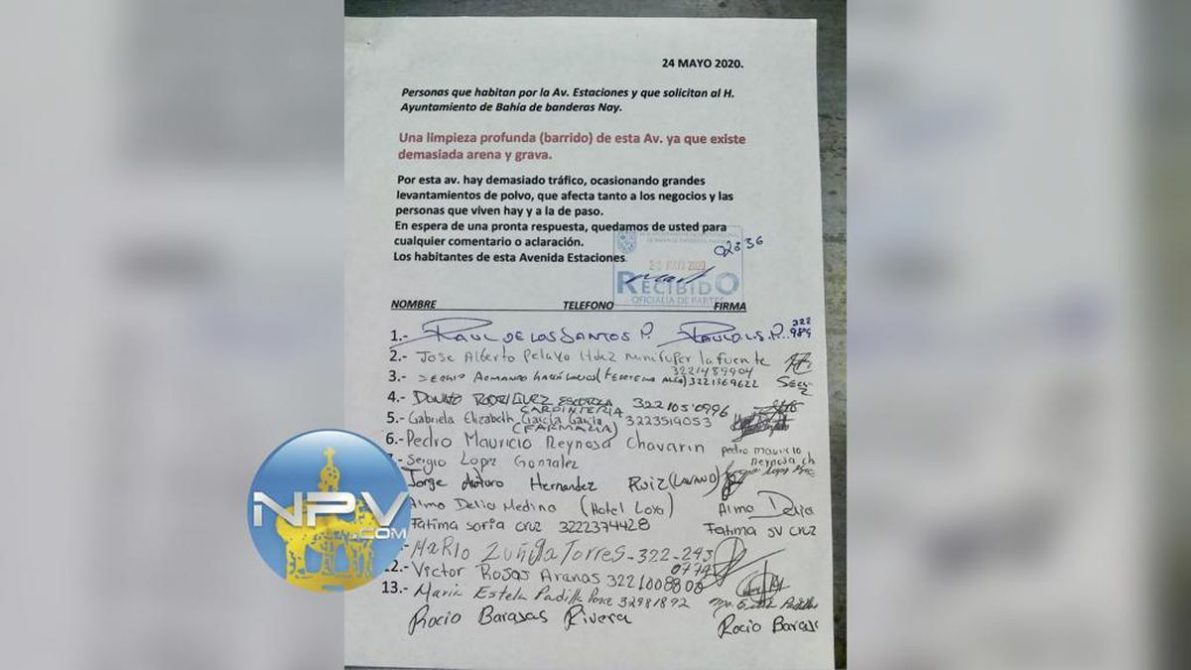 24 MAYO 2020.
Personas que habitan por la Av. Estaciones y que solicitan al H.
Ayuntamiento de Bahía de banderas Nay.
Una limpieza profunda (barrido) de esta Av. ya que existe
demasiada arena y grava.
Por esta av. hay demasiado tráfico, ocasionando grandes
levantamientos de polvo, que afecta tanto a los negocios y las
personas que viven hay y a la de paso.
En espera de una pronta respuesta, quedamos de usted para
cualquier comentario o aclaración.
Los habitantes de esta Avenida Estaciones
02336
RECIBIDO
OFICIALIA DE PARTES
NOMBRE TELEFONO FIRMA
1.- RAUL DE LOS SANTOS P. 322
2.- Jose Alberto Pelayo Hdez minisuper la fuente
3221489904
3.- SERGIO ARMANDO 3221369622
4.- DONATO RODRIGUEZ 3221050996
CARPINTERIA
5.- Gabriela Elizabeth Garcia Garcia 3223519053
(FARMACIA)
6.- Pedro Mauricio Reynosa Chavarin pedro mauricio
reynosa ch
Sergio Lopez Gonzalez
Jorge Arturo Hernandez Ruiz (LAVANO)
Alma Delia Medina (Hotel Loro) Alma Delia
Fatima soria cruz 3222374428 Fatima SV CRUZ
MARIO Zuñiga Torres-322-293
0774
12.- Victor Rosas Aranas 3221008800
13.- Maria Estela Padilla Ponce 32981892
Rocio Barasas Rivera Rocio Baras
NPV.COM